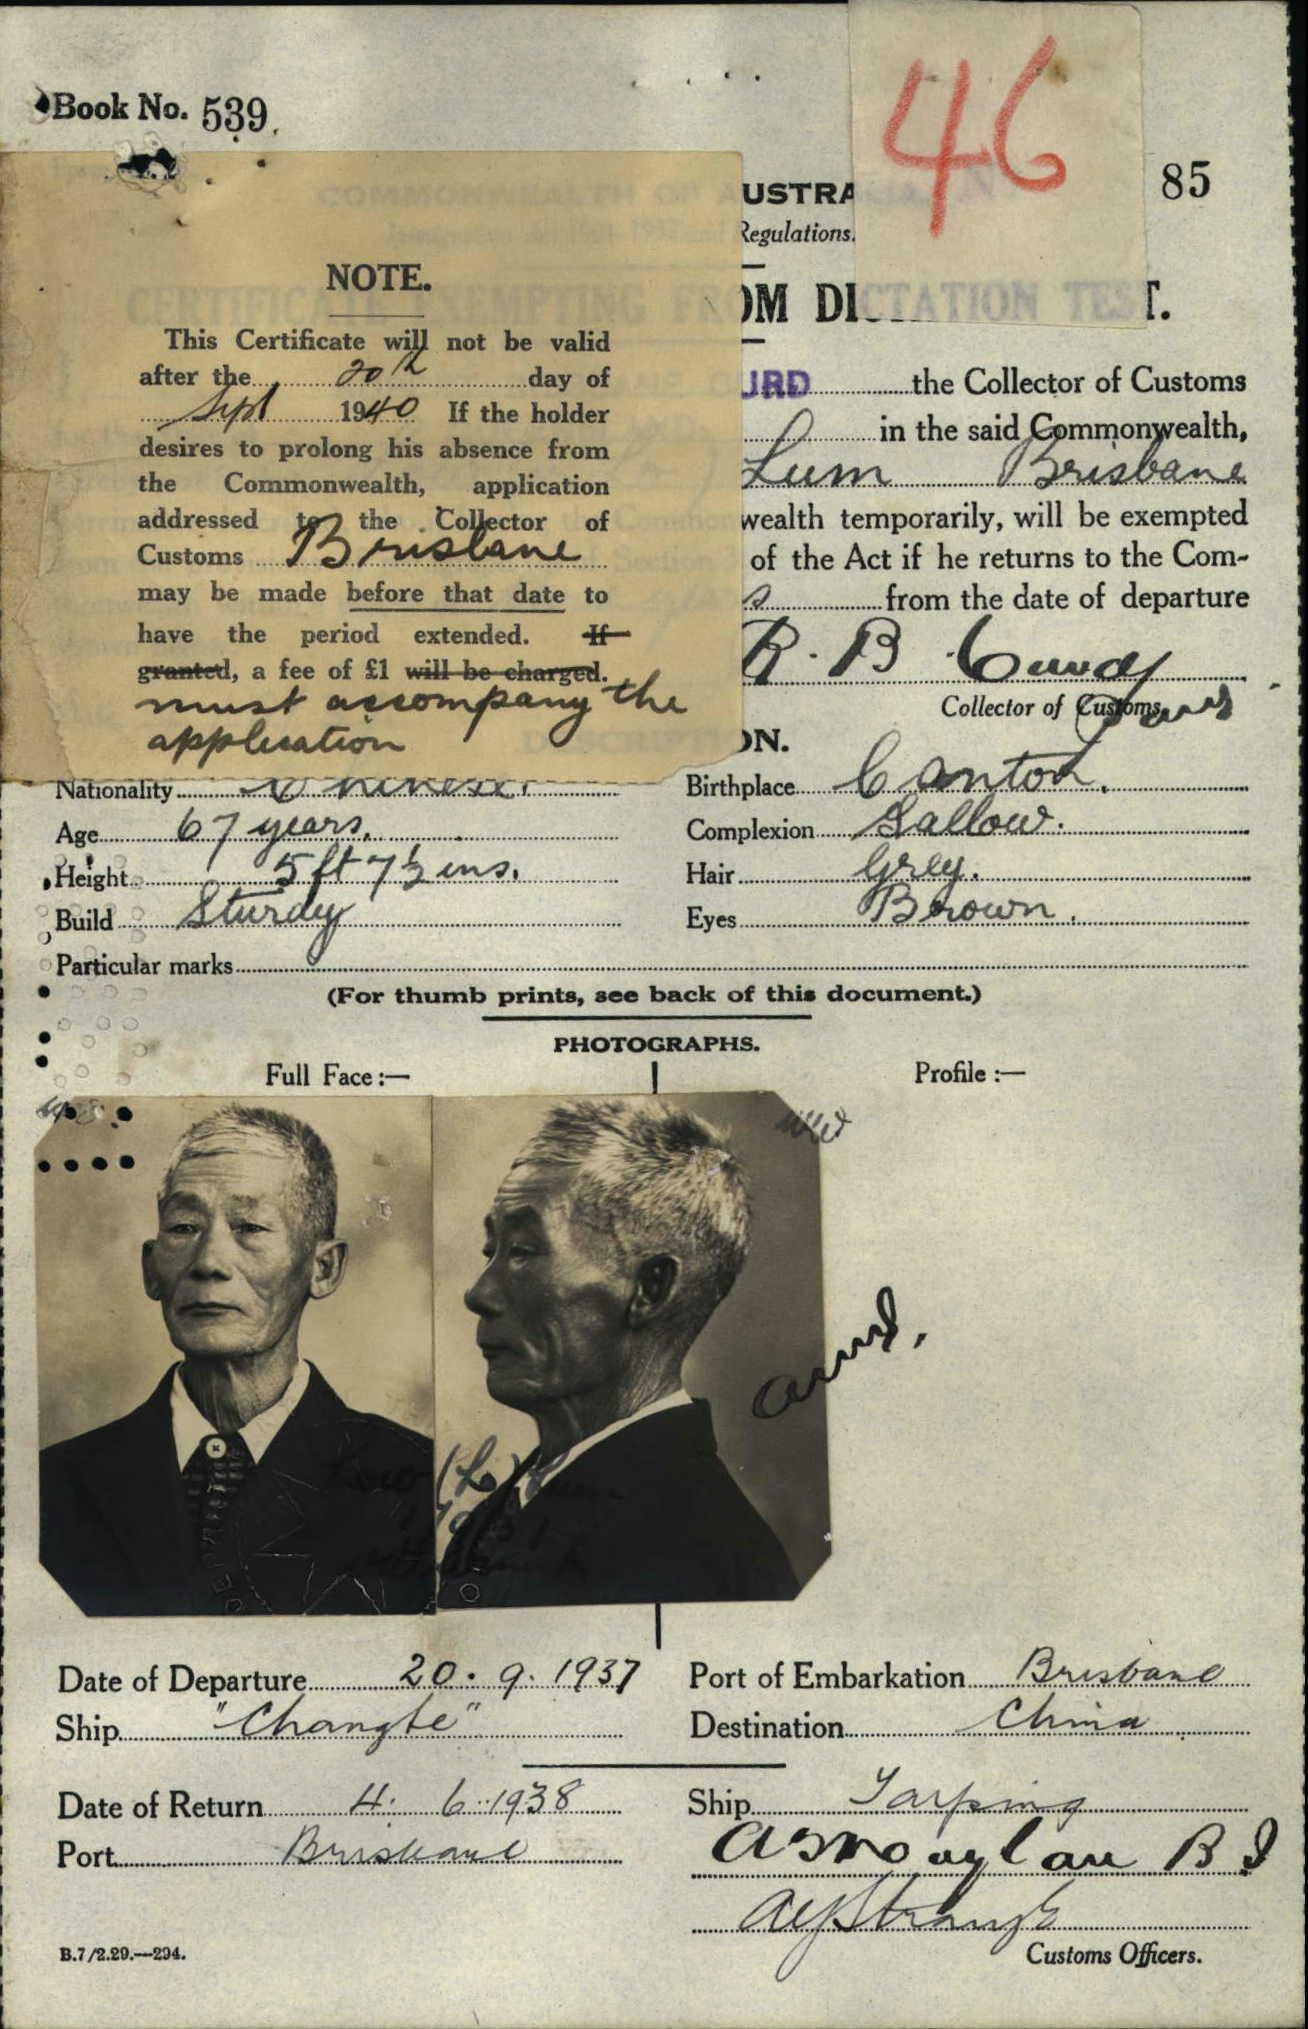 Book No. 539
46
85
COMMONWEALTH OF AUSTRALIA
Regulations.
CERTIFICATE EXEMPTING FROM DICTATION TEST.
NOTE.
This Certificate will not be valid
after the 20th day of
Sept 1940 If the holder
desires to prolong his absence from
the Commonwealth, application
addressed to the Collector of
Customs Brisbane
may be made before that date to
have the period extended. If
granted, a fee of £1 will be charged.
must accompany the
application
URD the Collector of Customs
in the said Commonwealth,
Lum Brisbane
wealth temporarily, will be exempted
of the Act if he returns to the Com-
s from the date of departure
R. B. Curd
Collector of Customs
DESCRIPTION.
Nationality Chinese. Birthplace Canton.
Age 67 years. Complexion Sallow.
Height 5 ft 7½ ins. Hair Grey.
Build Sturdy Eyes Brown.
Particular marks
(For thumb prints, see back of this document.)
PHOTOGRAPHS.
Full Face:— Profile:—
Date of Departure 20.9.1937 Port of Embarkation Brisbane
Ship "Changte" Destination China
Date of Return 4.6.1938 Ship Taiping
Port Brisbane
B.7/2.29.—294. Customs Officers.